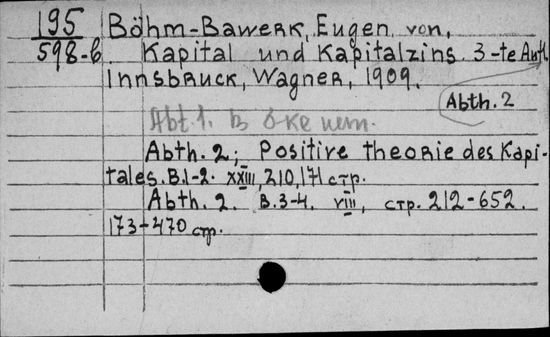 195
598-б
Böhm-Bawerk, Eugen von,
Kapital und Kapitalzins. 3-te Aufl.
Innsbruck, Wagner, 1909.
Abth. 2
Abt. 1. в б-ке нет.
Abth. 2; Positive theorie des Kapi-
tales. B. 1-2. XXIII, 210, 171 стр.
Abth. 2. B. 3-4. VIII, стр. 212-652.
173-470 стр.